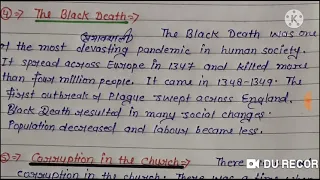 ④⇒ The Black Death⇒
The Black Death was one
of the most devasting pandemic in human society.
It spread across Europe in 1347 and killed more
than four million people. It came in 1348-1349. The
first outbreak of Plague swept across England.
Black Death resulted in many social changes.
Population decreased and labour became less.
⑤⇒ Corruption in the church⇒ There
corruption in the church. There was a time when
DU RECOR